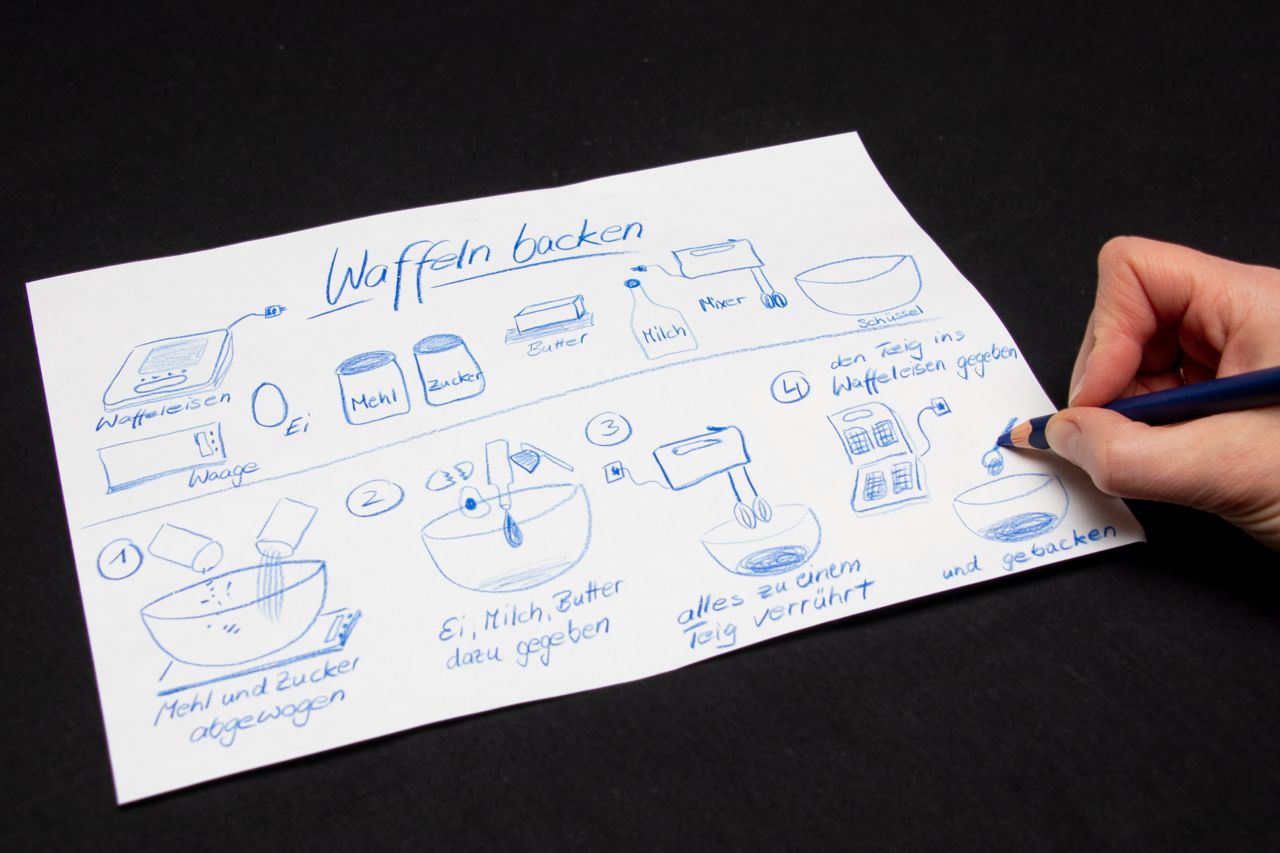 Waffeln backen
Waffeleisen
Ei
Mehl
Zucker
Butter
Milch
Mixer
Schüssel
Waage
1
Mehl und Zucker
abgewogen
2
Ei, Milch, Butter
dazu gegeben
3
alles zu einem
Teig verrührt
4
den Teig ins
Waffeleisen gegeben
und gebacken